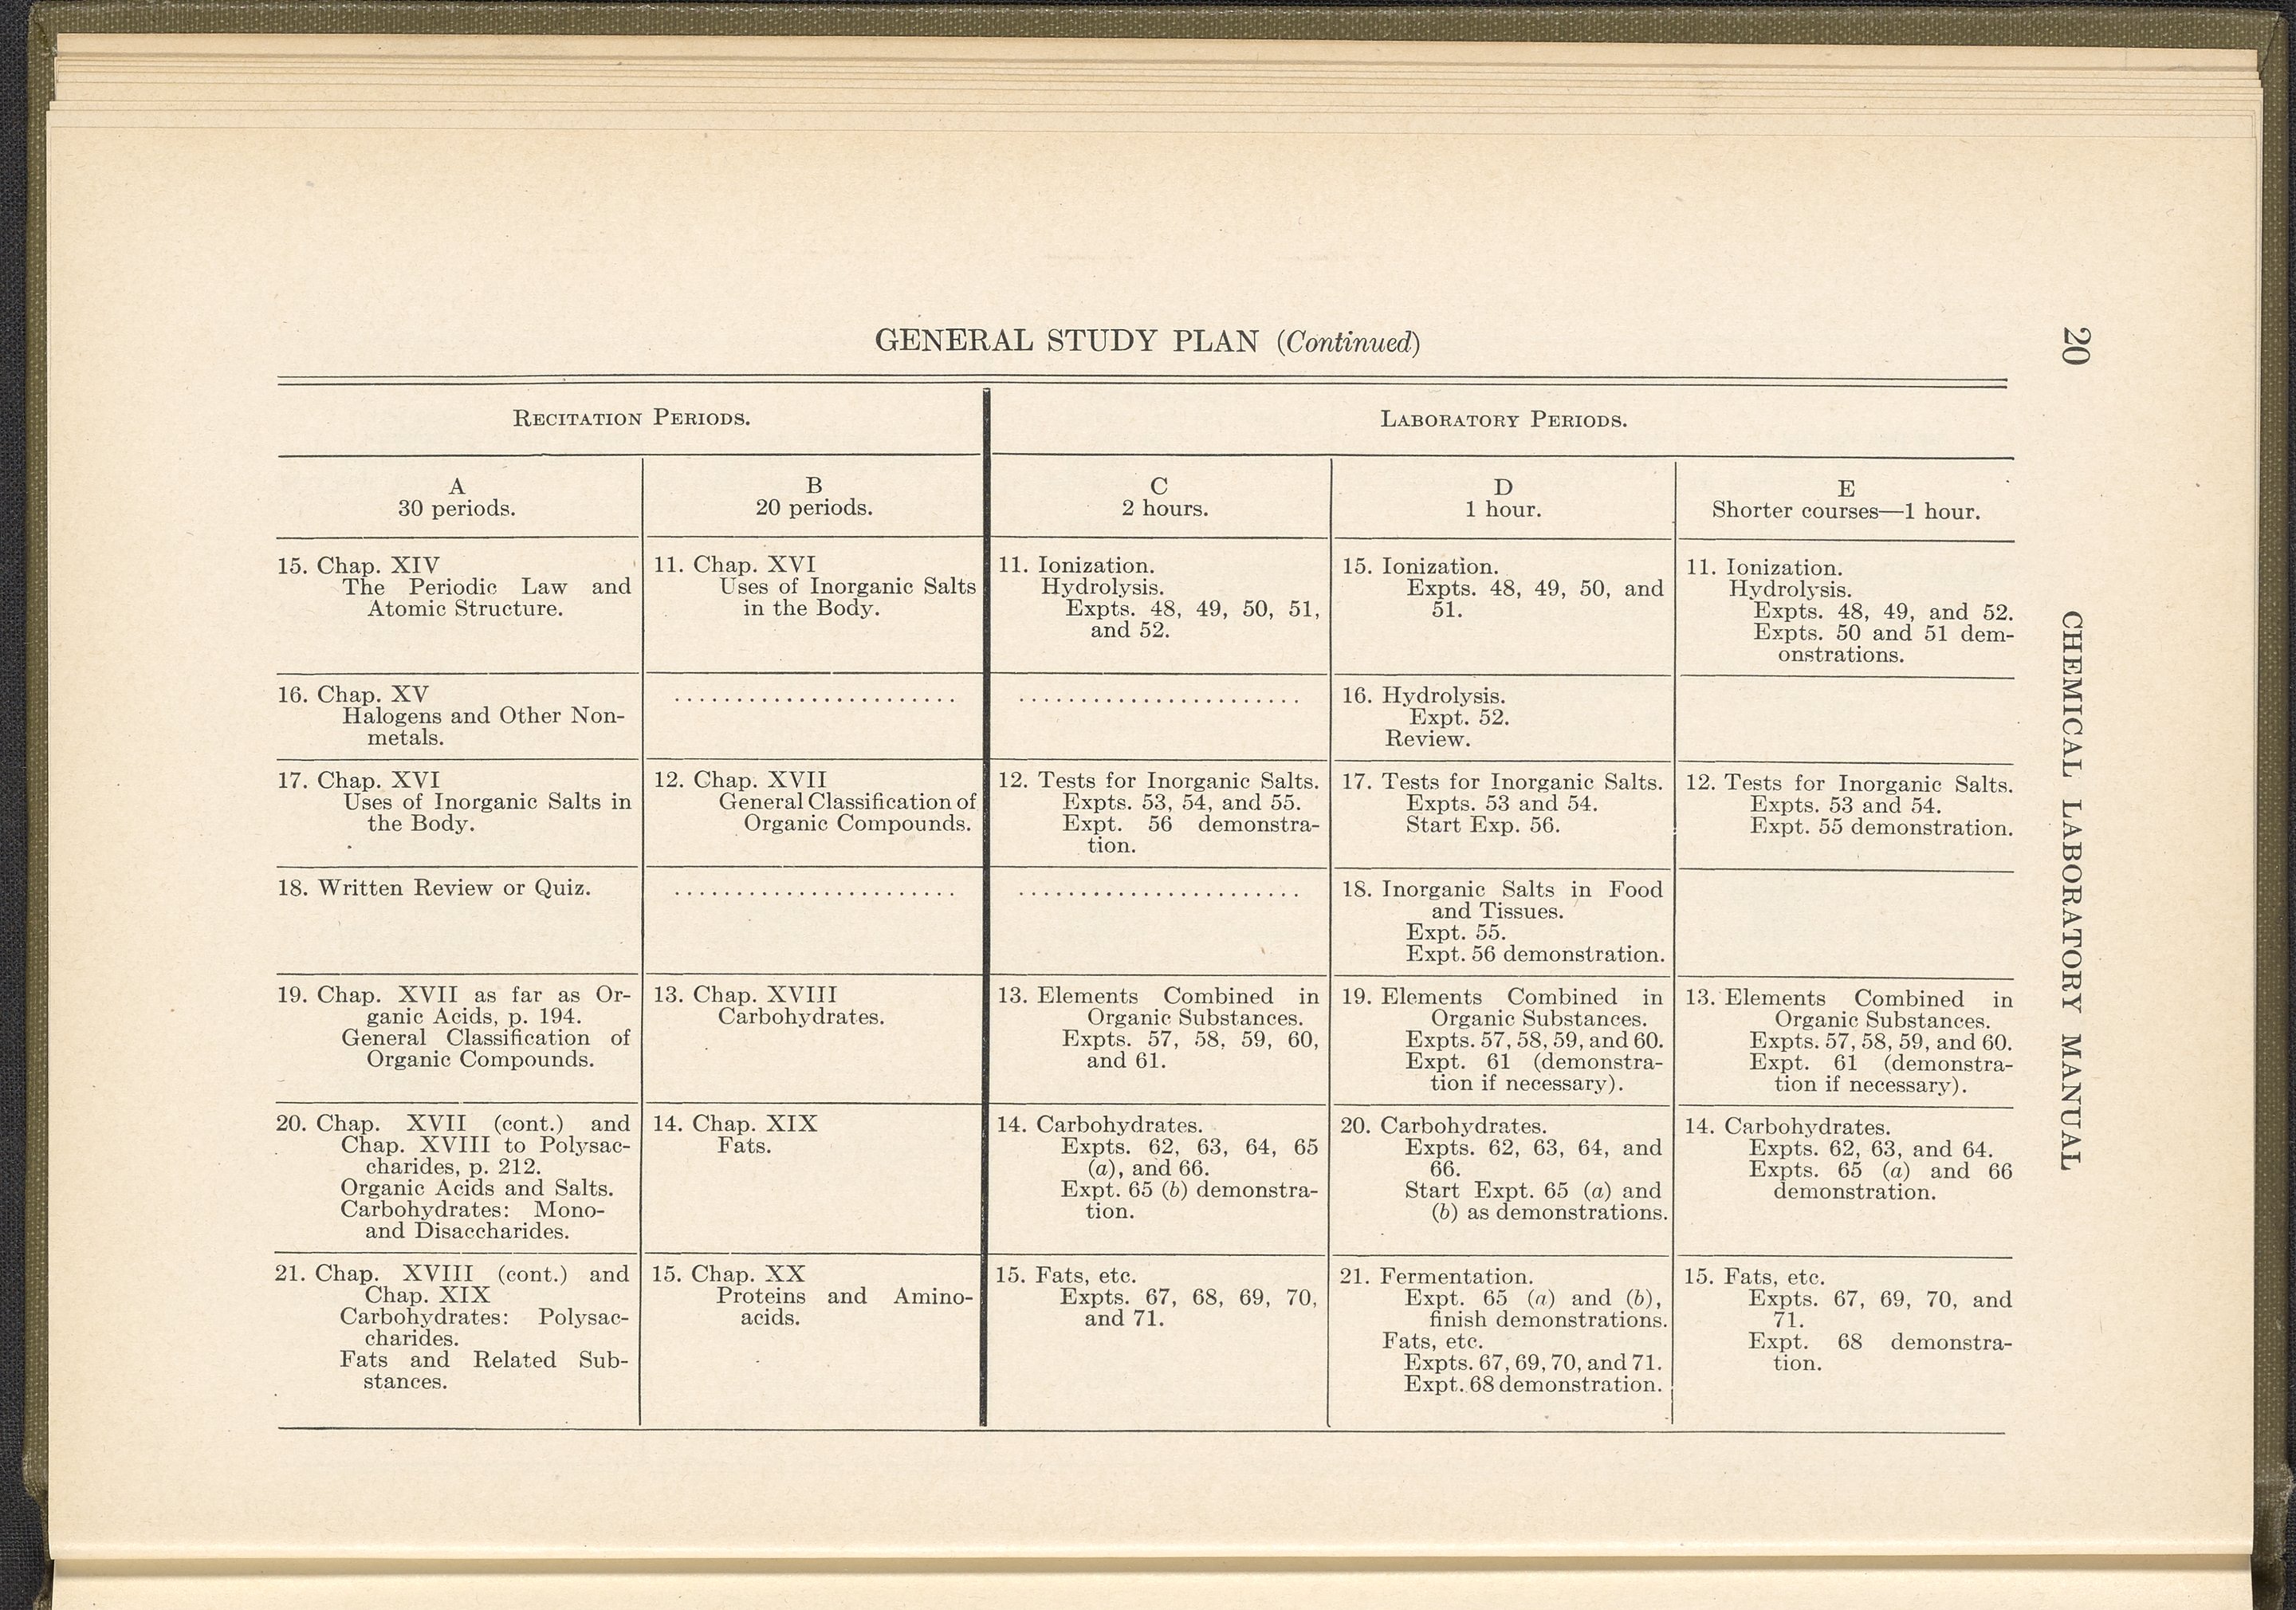 GENERAL STUDY PLAN (Continued)
20
CHEMICAL LABORATORY MANUAL
RECITATION PERIODS.
LABORATORY PERIODS.
A
30 periods.
B
20 periods.
C
2 hours.
D
1 hour.
E
Shorter courses—1 hour.
15. Chap. XIV
The Periodic Law and
Atomic Structure.
11. Chap. XVI
Uses of Inorganic Salts
in the Body.
11. Ionization.
Hydrolysis.
Expts. 48, 49, 50, 51,
and 52.
15. Ionization.
Expts. 48, 49, 50, and
51.
11. Ionization.
Hydrolysis.
Expts. 48, 49, and 52.
Expts. 50 and 51 dem-
onstrations.
16. Chap. XV
Halogens and Other Non-
metals.
.......................
.......................
16. Hydrolysis.
Expt. 52.
Review.
17. Chap. XVI
Uses of Inorganic Salts in
the Body.
12. Chap. XVII
General Classification of
Organic Compounds.
12. Tests for Inorganic Salts.
Expts. 53, 54, and 55.
Expt. 56 demonstra-
tion.
17. Tests for Inorganic Salts.
Expts. 53 and 54.
Start Exp. 56.
12. Tests for Inorganic Salts.
Expts. 53 and 54.
Expt. 55 demonstration.
18. Written Review or Quiz.
.......................
.......................
18. Inorganic Salts in Food
and Tissues.
Expt. 55.
Expt. 56 demonstration.
19. Chap. XVII as far as Or-
ganic Acids, p. 194.
General Classification of
Organic Compounds.
13. Chap. XVIII
Carbohydrates.
13. Elements Combined in
Organic Substances.
Expts. 57, 58, 59, 60,
and 61.
19. Elements Combined in
Organic Substances.
Expts. 57, 58, 59, and 60.
Expt. 61 (demonstra-
tion if necessary).
13. Elements Combined in
Organic Substances.
Expts. 57, 58, 59, and 60.
Expt. 61 (demonstra-
tion if necessary).
20. Chap. XVII (cont.) and
Chap. XVIII to Polysac-
charides, p. 212.
Organic Acids and Salts.
Carbohydrates: Mono-
and Disaccharides.
14. Chap. XIX
Fats.
14. Carbohydrates.
Expts. 62, 63, 64, 65
(a), and 66.
Expt. 65 (b) demonstra-
tion.
20. Carbohydrates.
Expts. 62, 63, 64, and
66.
Start Expt. 65 (a) and
(b) as demonstrations.
14. Carbohydrates.
Expts. 62, 63, and 64.
Expts. 65 (a) and 66
demonstration.
21. Chap. XVIII (cont.) and
Chap. XIX
Carbohydrates: Polysac-
charides.
Fats and Related Sub-
stances.
15. Chap. XX
Proteins and Amino-
acids.
15. Fats, etc.
Expts. 67, 68, 69, 70,
and 71.
21. Fermentation.
Expt. 65 (a) and (b),
finish demonstrations.
Fats, etc.
Expts. 67, 69, 70, and 71.
Expt. 68 demonstration.
15. Fats, etc.
Expts. 67, 69, 70, and
71.
Expt. 68 demonstra-
tion.